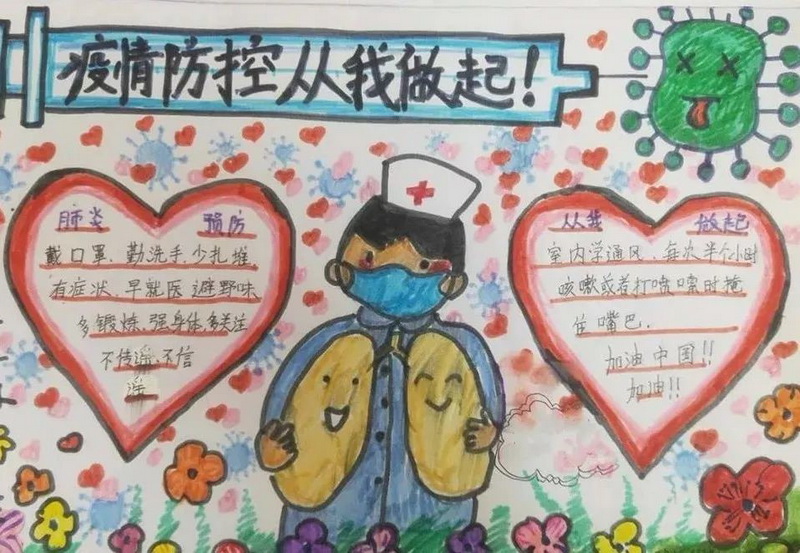 疫情防控从我做起!
肺炎 预防
戴口罩、勤洗手、少扎堆
有症状、早就医 避野味
多锻炼、强身体、多关注
不传谣、不信
谣
从我 做起
室内学通风、每次半个小时
咳嗽或者打喷嚏时掩
住嘴巴.
加油中国!!
加油!!